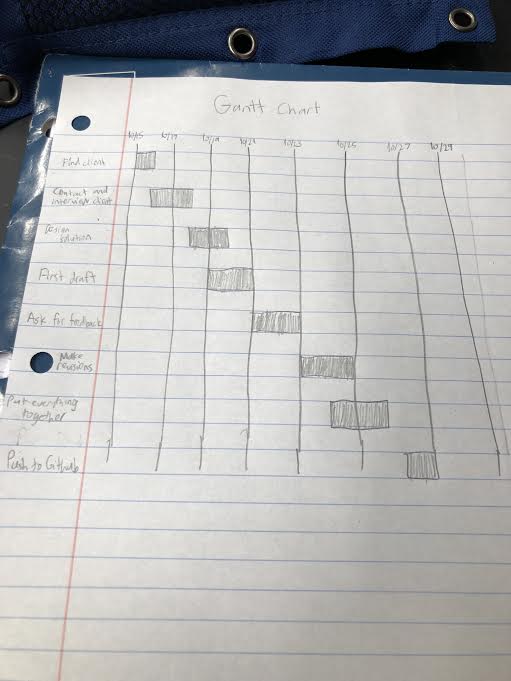 Gantt Chart
10/15 10/17 10/19 10/21 10/23 10/25 10/27 10/29
Find client
Contact and
interview client
Design
solution
First draft
Ask for feedback
Make
revisions
Put everything
together
Push to Github